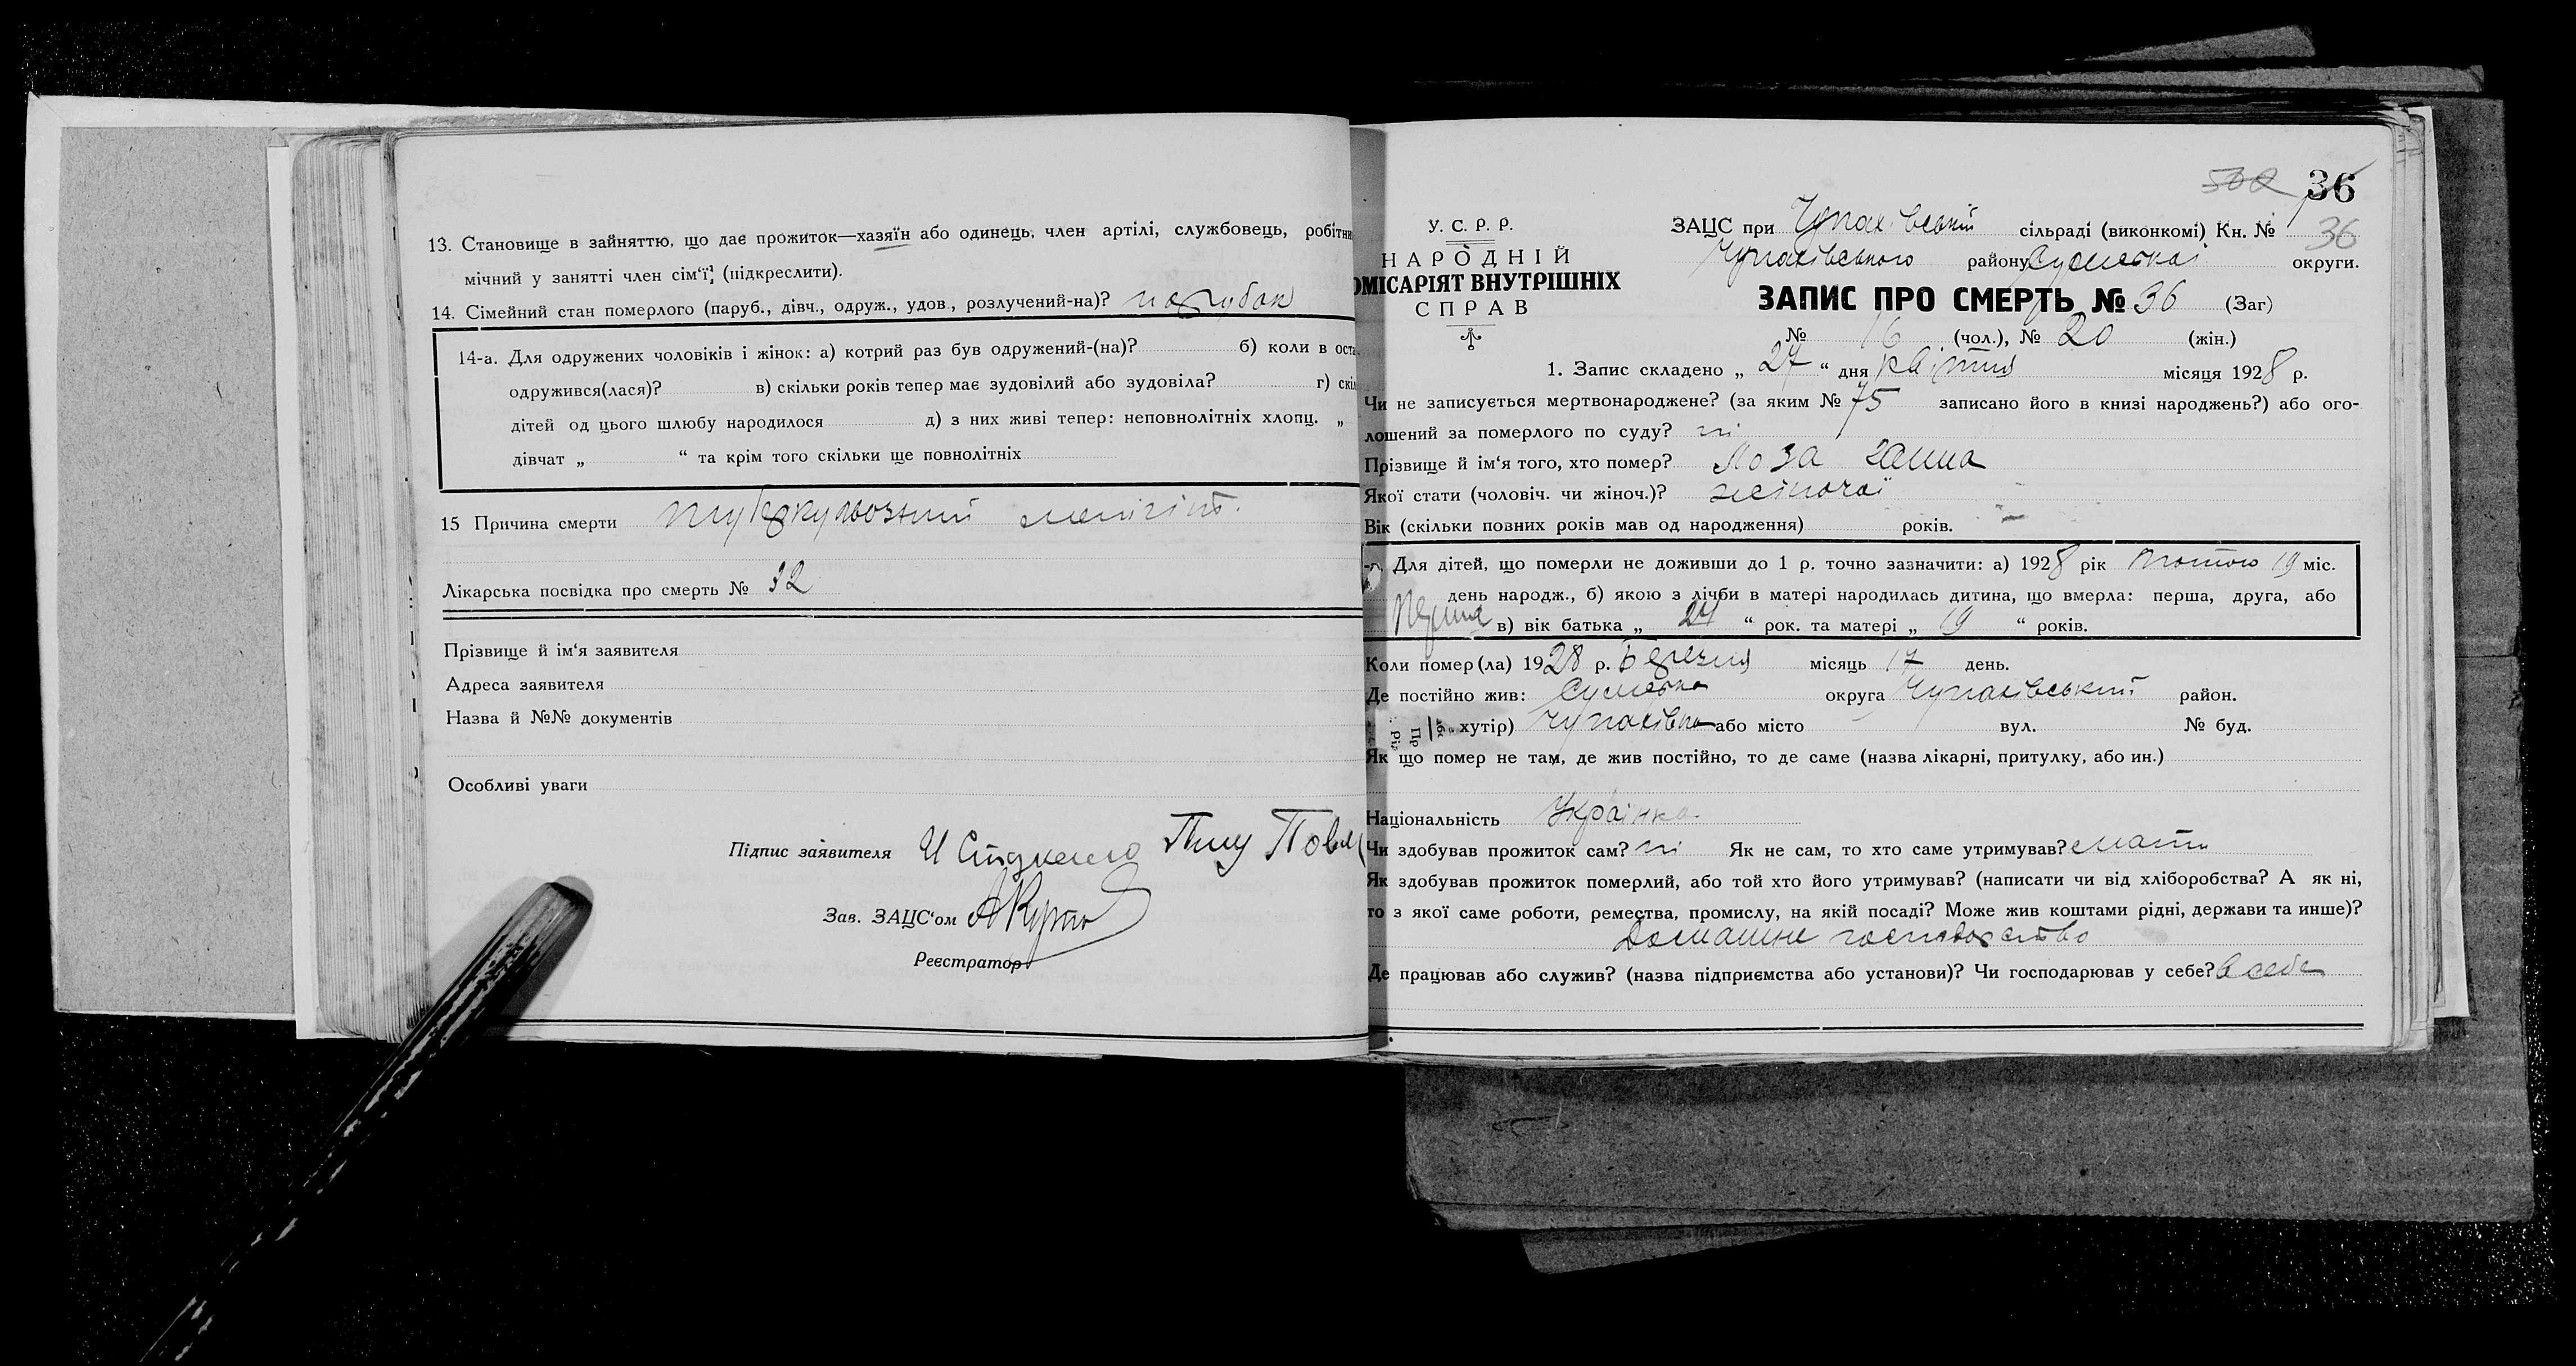 13. Становище в зайняттю, що дає прожиток—хазяїн або одинець, член артілі, службовець, робітни
мічний у занятті член сім'ї, (підкреслити).
14. Сімейний стан померлого (паруб., дівч., одруж., удов., розлучений-на)? парубок
14-а. Для одружених чоловіків і жінок: а) котрий раз був одружений-(на)? б) коли в оста
одружився(лася)? в) скільки років тепер має зудовілий або зудовіла? г) скіл
дітей од цього шлюбу народилося д) з них живі тепер: неповнолітніх хлопц. „
дівчат „ “ та крім того скільки ще повнолітніх
15 Причина смерти туберкульозний менінгіт.
Лікарська посвідка про смерть № 32
Прізвище й ім'я заявителя
Адреса заявителя
Назва й №№ документів
Особливі уваги
Підпис заявителя
Зав. ЗАЦС'ом
Реєстратор
500 36
У. С. Р. Р.
НАРОДНІЙ
ОМІСАРІЯТ ВНУТРІШНІХ
СПРАВ
ЗАЦС при Чупахівській сільраді (виконкомі) Кн. № 36
Чупахівського району Сумської округи.
ЗАПИС ПРО СМЕРТЬ № 36 (Заг)
№ 16 (чол.), № 20 (жін.)
1. Запис складено „ 27 “ дня квітня місяця 1928 р.
Чи не записується мертвонароджене? (за яким № 75 записано його в книзі народжень?) або ого-
лошений за померлого по суду? ні
Прізвище й ім'я того, хто помер? Лоза Ганна
Якої стати (чоловіч. чи жіноч.)? жіночої
Вік (скільки повних років мав од народження) років.
Для дітей, що померли не доживши до 1 р. точно зазначити: а) 1928 рік Лютого 19 міс.
день народж., б) якою з лічби в матері народилась дитина, що вмерла: перша, друга, або
Перша в) вік батька „ 24 “ рок. та матері „ 19 “ років.
Коли помер(ла) 1928 р. Березня місяць 17 день.
Де постійно жив: Сумська округа Чупахівський район.
хутір) Чупахівка або місто вул. № буд.
Як що помер не там, де жив постійно, то де саме (назва лікарні, притулку, або ин.)
Національність Українка
Чи здобував прожиток сам? ні Як не сам, то хто саме утримував? мати
Як здобував прожиток померлий, або той хто його утримував? (написати чи від хліборобства? А як ні,
то з якої саме роботи, ремества, промислу, на якій посаді? Може жив коштами рідні, держави та инше)?
Домашнє господарство
Де працював або служив? (назва підприємства або установи)? Чи господарював у себе? в себе